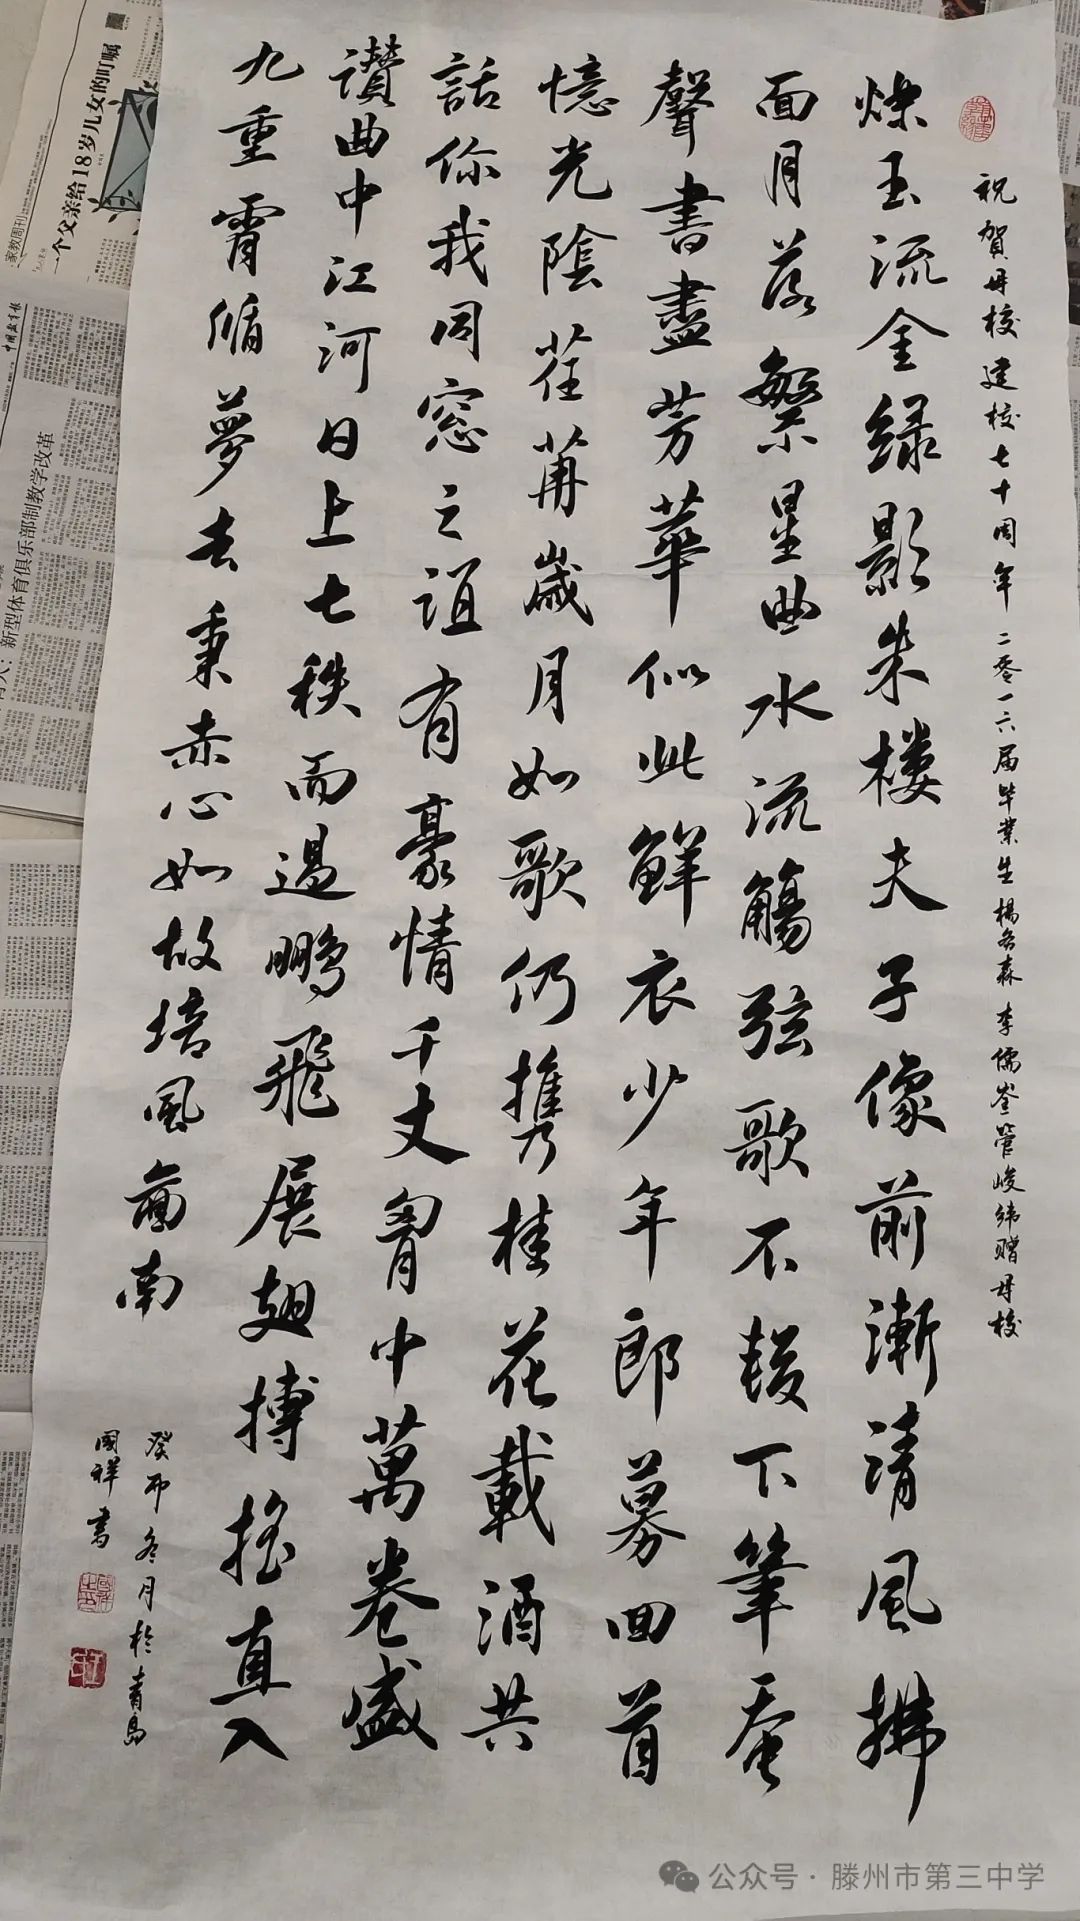 祝賀母校建校七十周年 二零一六届毕業生楊冬森 李儒 管峻緯贈母校
爍玉流金绿影朱楼夫子像前漸清風拂
面月落繁星曲水流觴弦歌不輟下筆蚕
聲書盡芳華似此鮮衣少年郎募回首
憶光陰荏苒歲月如歌仍攜桂花載酒共
話你我同窓之誼有豪情千丈胷中萬卷盛
讚曲中江河日上七秩而過鵬飛展翅搏摇直入
九重霄循夢去秉赤心如故培風啚南
癸卯冬月於青島
國祥書
一个父亲给18岁儿女的叮嘱
家教周刊
中国教育报
新型体育俱乐部制教学改革
公众号·滕州市第三中学